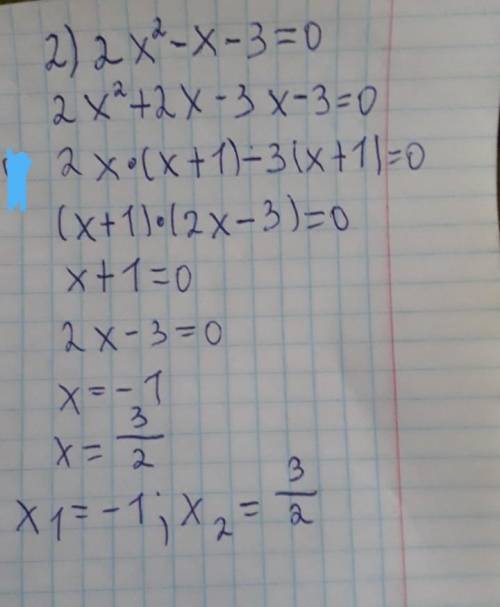 2) 2x² - x - 3 = 0
2x² + 2x - 3x - 3 = 0
2x·(x + 1) - 3(x + 1) = 0
(x + 1)·(2x - 3) = 0
x + 1 = 0
2x - 3 = 0
x = - 1
x = 3/2
x₁ = - 1; x₂ = 3/2